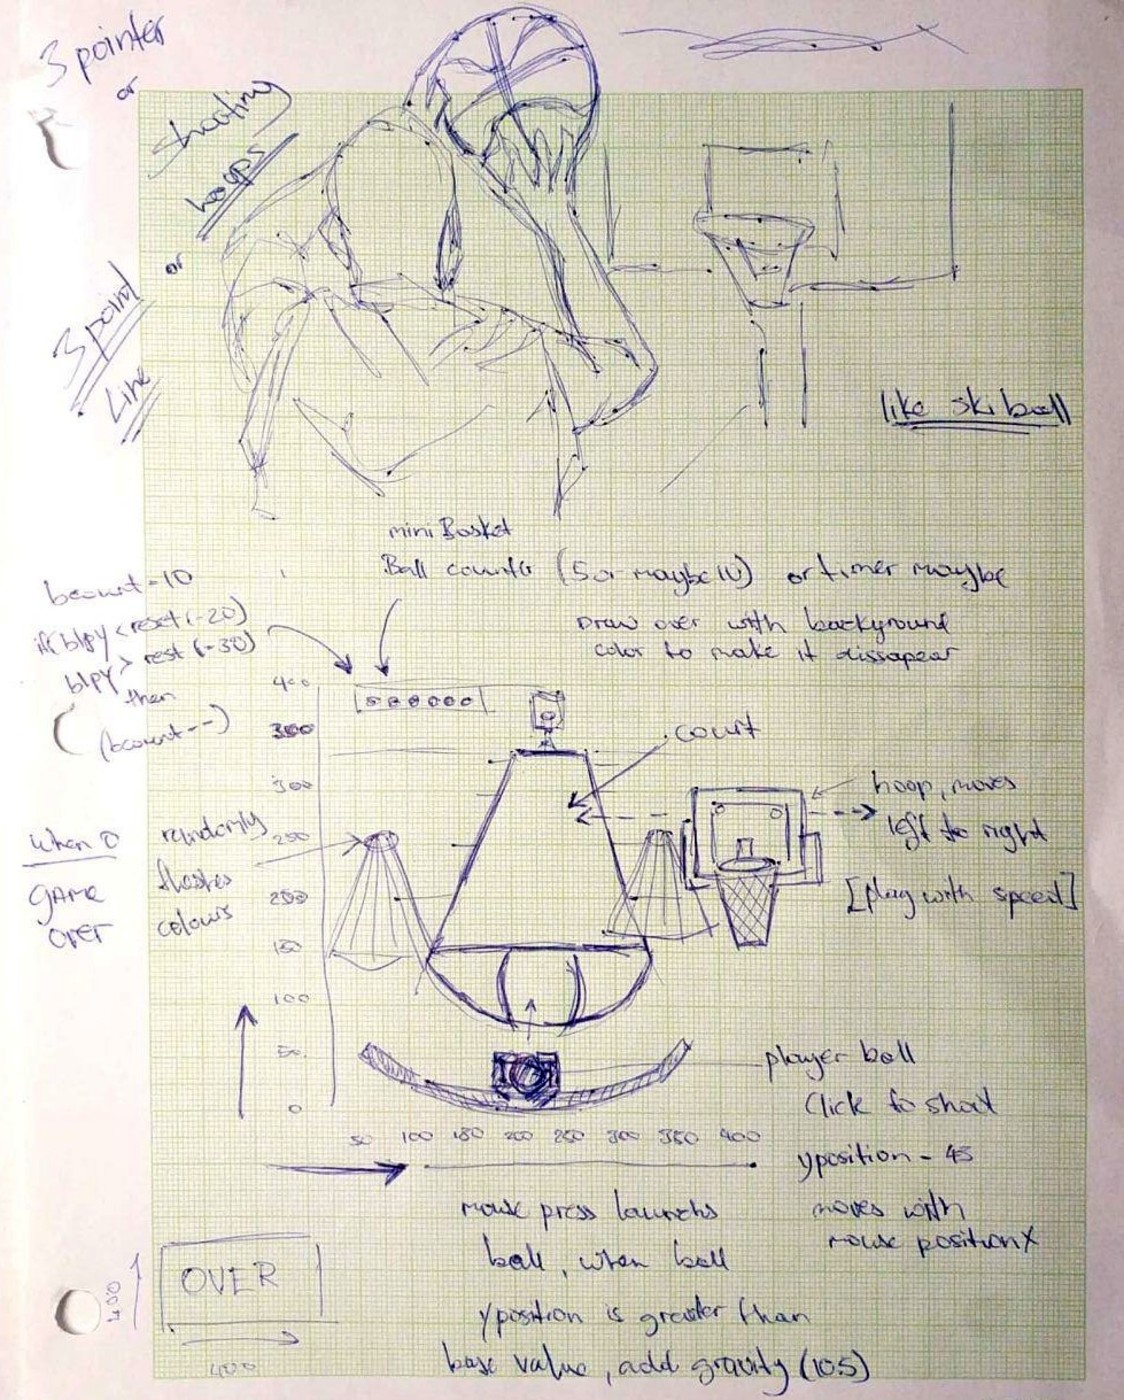 3 pointer
or
shooting
hoops
or
3 point
Line
like skiball
mini Basket
Ball counter (5 or maybe 10) or timer maybe
Draw over with background
color to make it dissapear
bcount=10
if blpy < reset (-20)
blpy > rest (-30)
then
(bcount--)
when 0
GAME
OVER
randomly
flashes
colours
400
350
300
250
200
150
100
50
0
court
hoop, moves
left to right
[play with speed]
player ball
Click to shoot
yposition - 45
moves with
mouse positionX
50 100 150 200 250 300 350 400
mouse press launchs
ball, when ball
yposition is greater than
base value, add gravity (10.5)
OVER
400
400